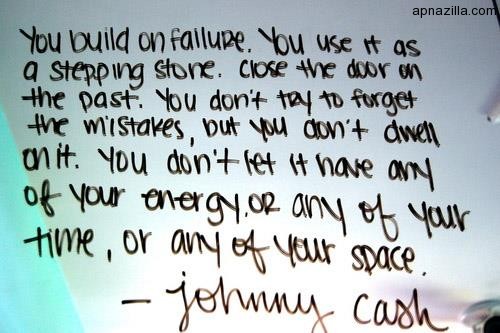 apnazilla.com
You build on failure. You use it as
a stepping stone. Close the door on
the past. You don't try to forget
the mistakes, but you don't dwell
on it. You don't let it have any
of your energy, or any of your
time, or any of your space.
- johnny cash